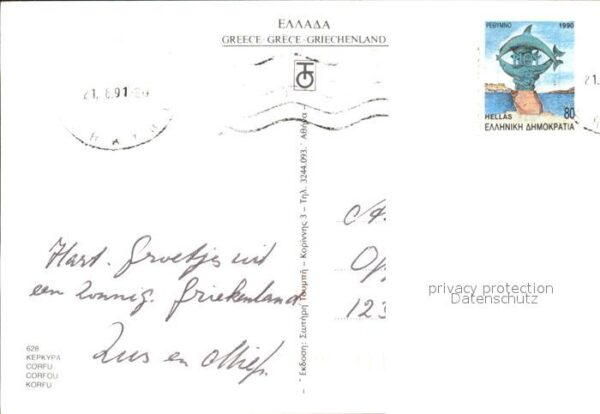 ΕΛΛΑΔΑ
GREECE - GRECE - GRIECHENLAND
21. 8.91
ΡΕΘΥΜΝΟ 1990
HELLAS 80
ΕΛΛΗΝΙΚΗ ΔΗΜΟΚΡΑΤΙΑ
21.
Έκδοση: Σωτήρη Τουμπή - Κορίννης 3 - Τηλ. 3244.093. Αθήνα
Hart. Groetjes uit
een Zonnig. Griekenland
Zus en Miep.
Op
123
privacy protection
Datenschutz
628
ΚΕΡΚΥΡΑ
CORFU
CORFOU
KORFU